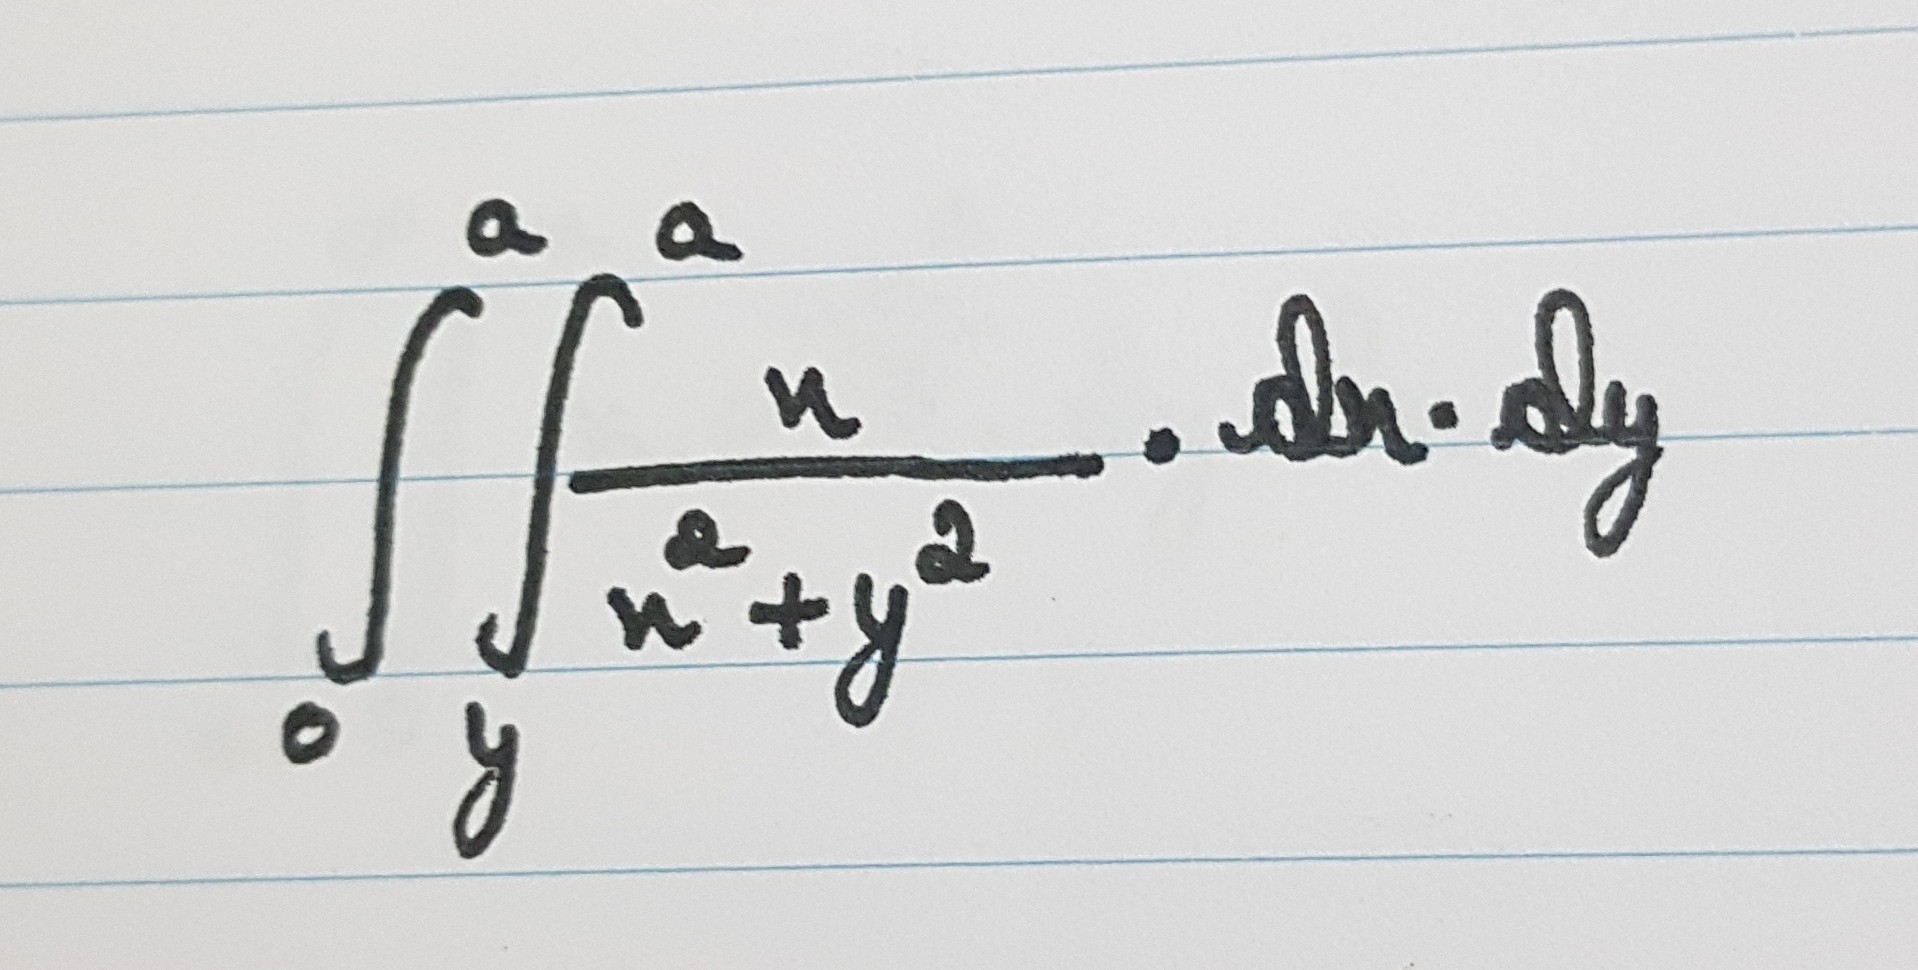 ∫₀ᵃ ∫ᵧᵃ x / (x² + y²) · dx · dy